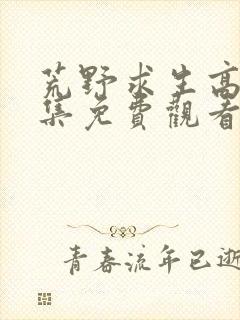 荒野求生高
集免費觀看
青春流年已逝